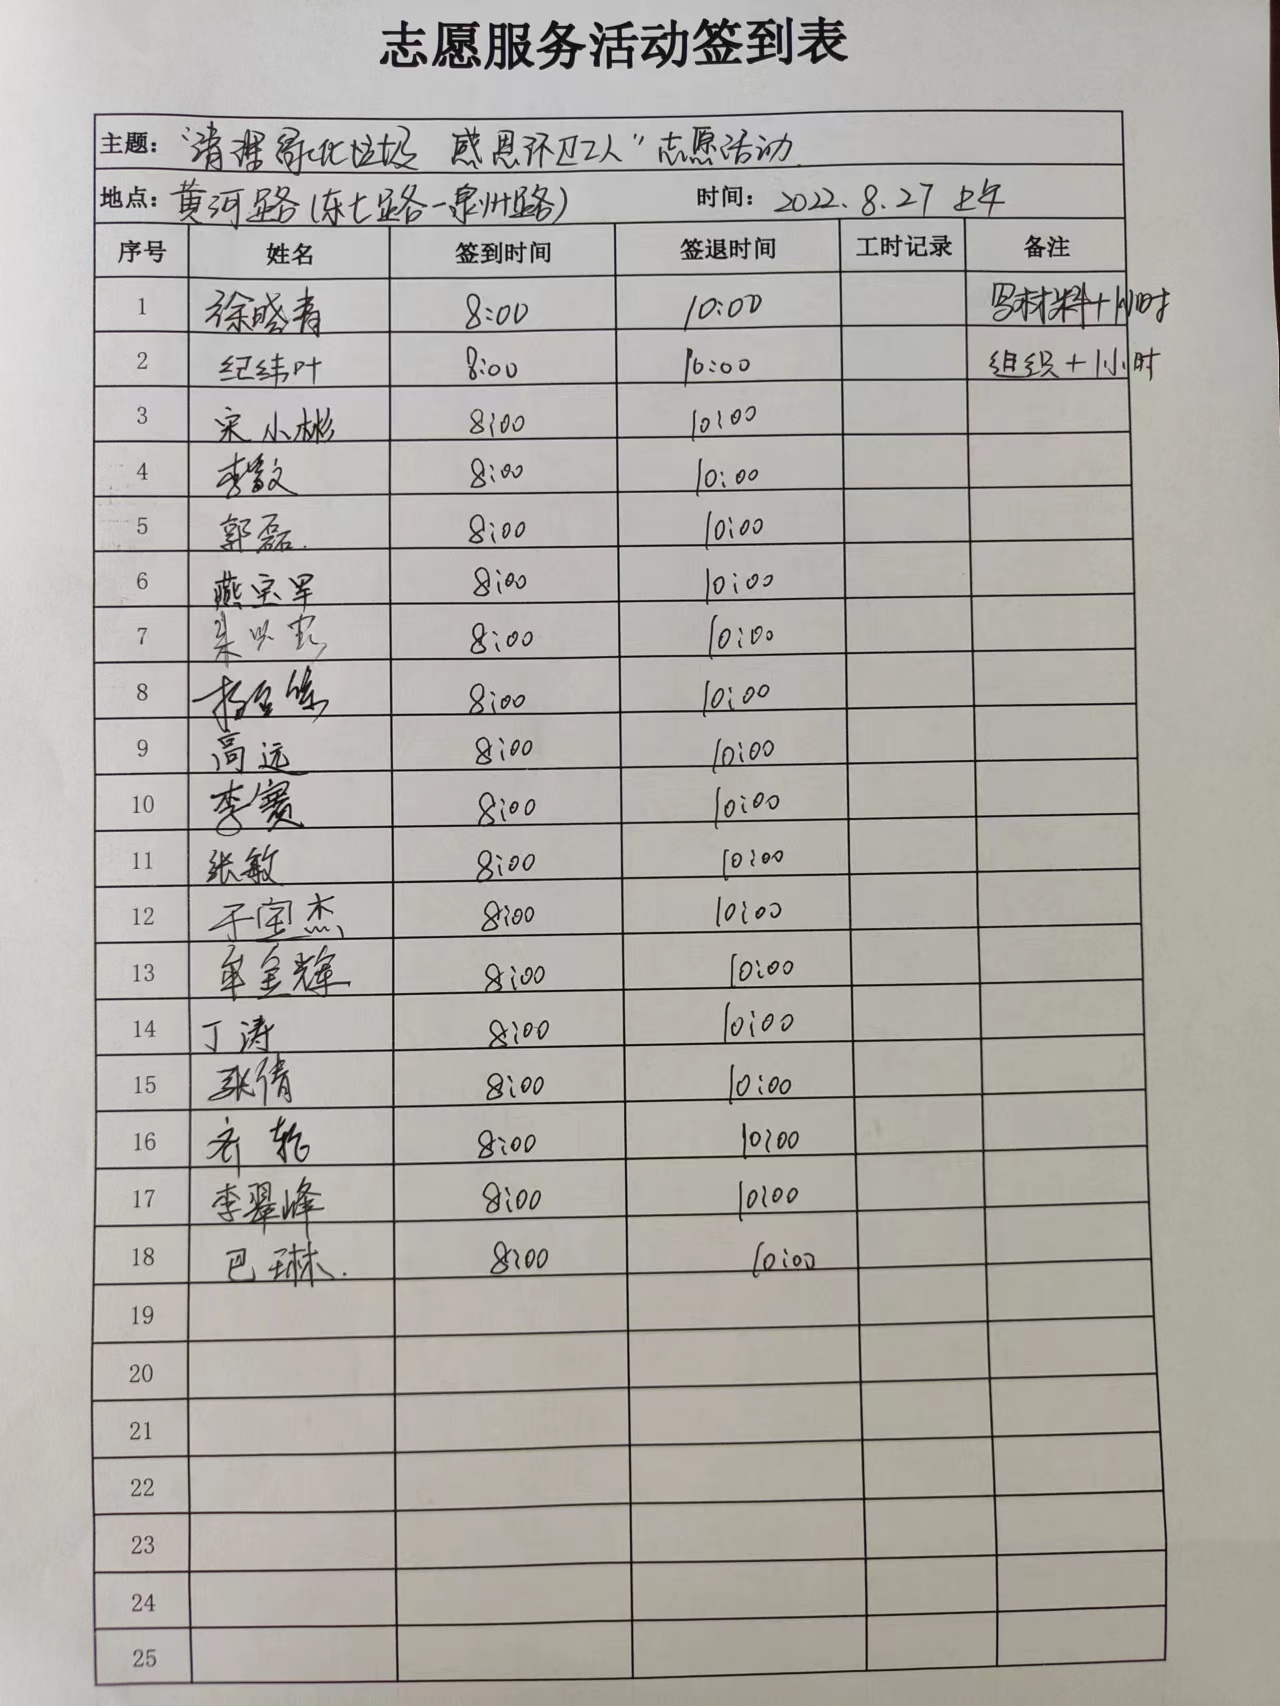 志愿服务活动签到表
主题： “清理绿化垃圾 感恩环卫工人”志愿活动
地点： 黄河路（东七路—泉州路） 时间： 2022.8.27 上午
序号 姓名 签到时间 签退时间 工时记录 备注
1 徐晓青 8:00 10:00 写材料+1小时
2 纪纬叶 8:00 10:00 组织+1小时
3 宋小彬 8:00 10:00
4 李敏文 8:00 10:00
5 郭磊. 8:00 10:00
6 燕宝军 8:00 10:00
7 8:00 10:00
8 8:00 10:00
9 高远 8:00 10:00
10 李赛 8:00 10:00
11 张敏 8:00 10:00
12 于宝杰 8:00 10:00
13 牟金辉 8:00 10:00
14 丁涛 8:00 10:00
15 张倩 8:00 10:00
16 8:00 10:00
17 李翠峰 8:00 10:00
18 巴琳. 8:00 10:00
19
20
21
22
23
24
25